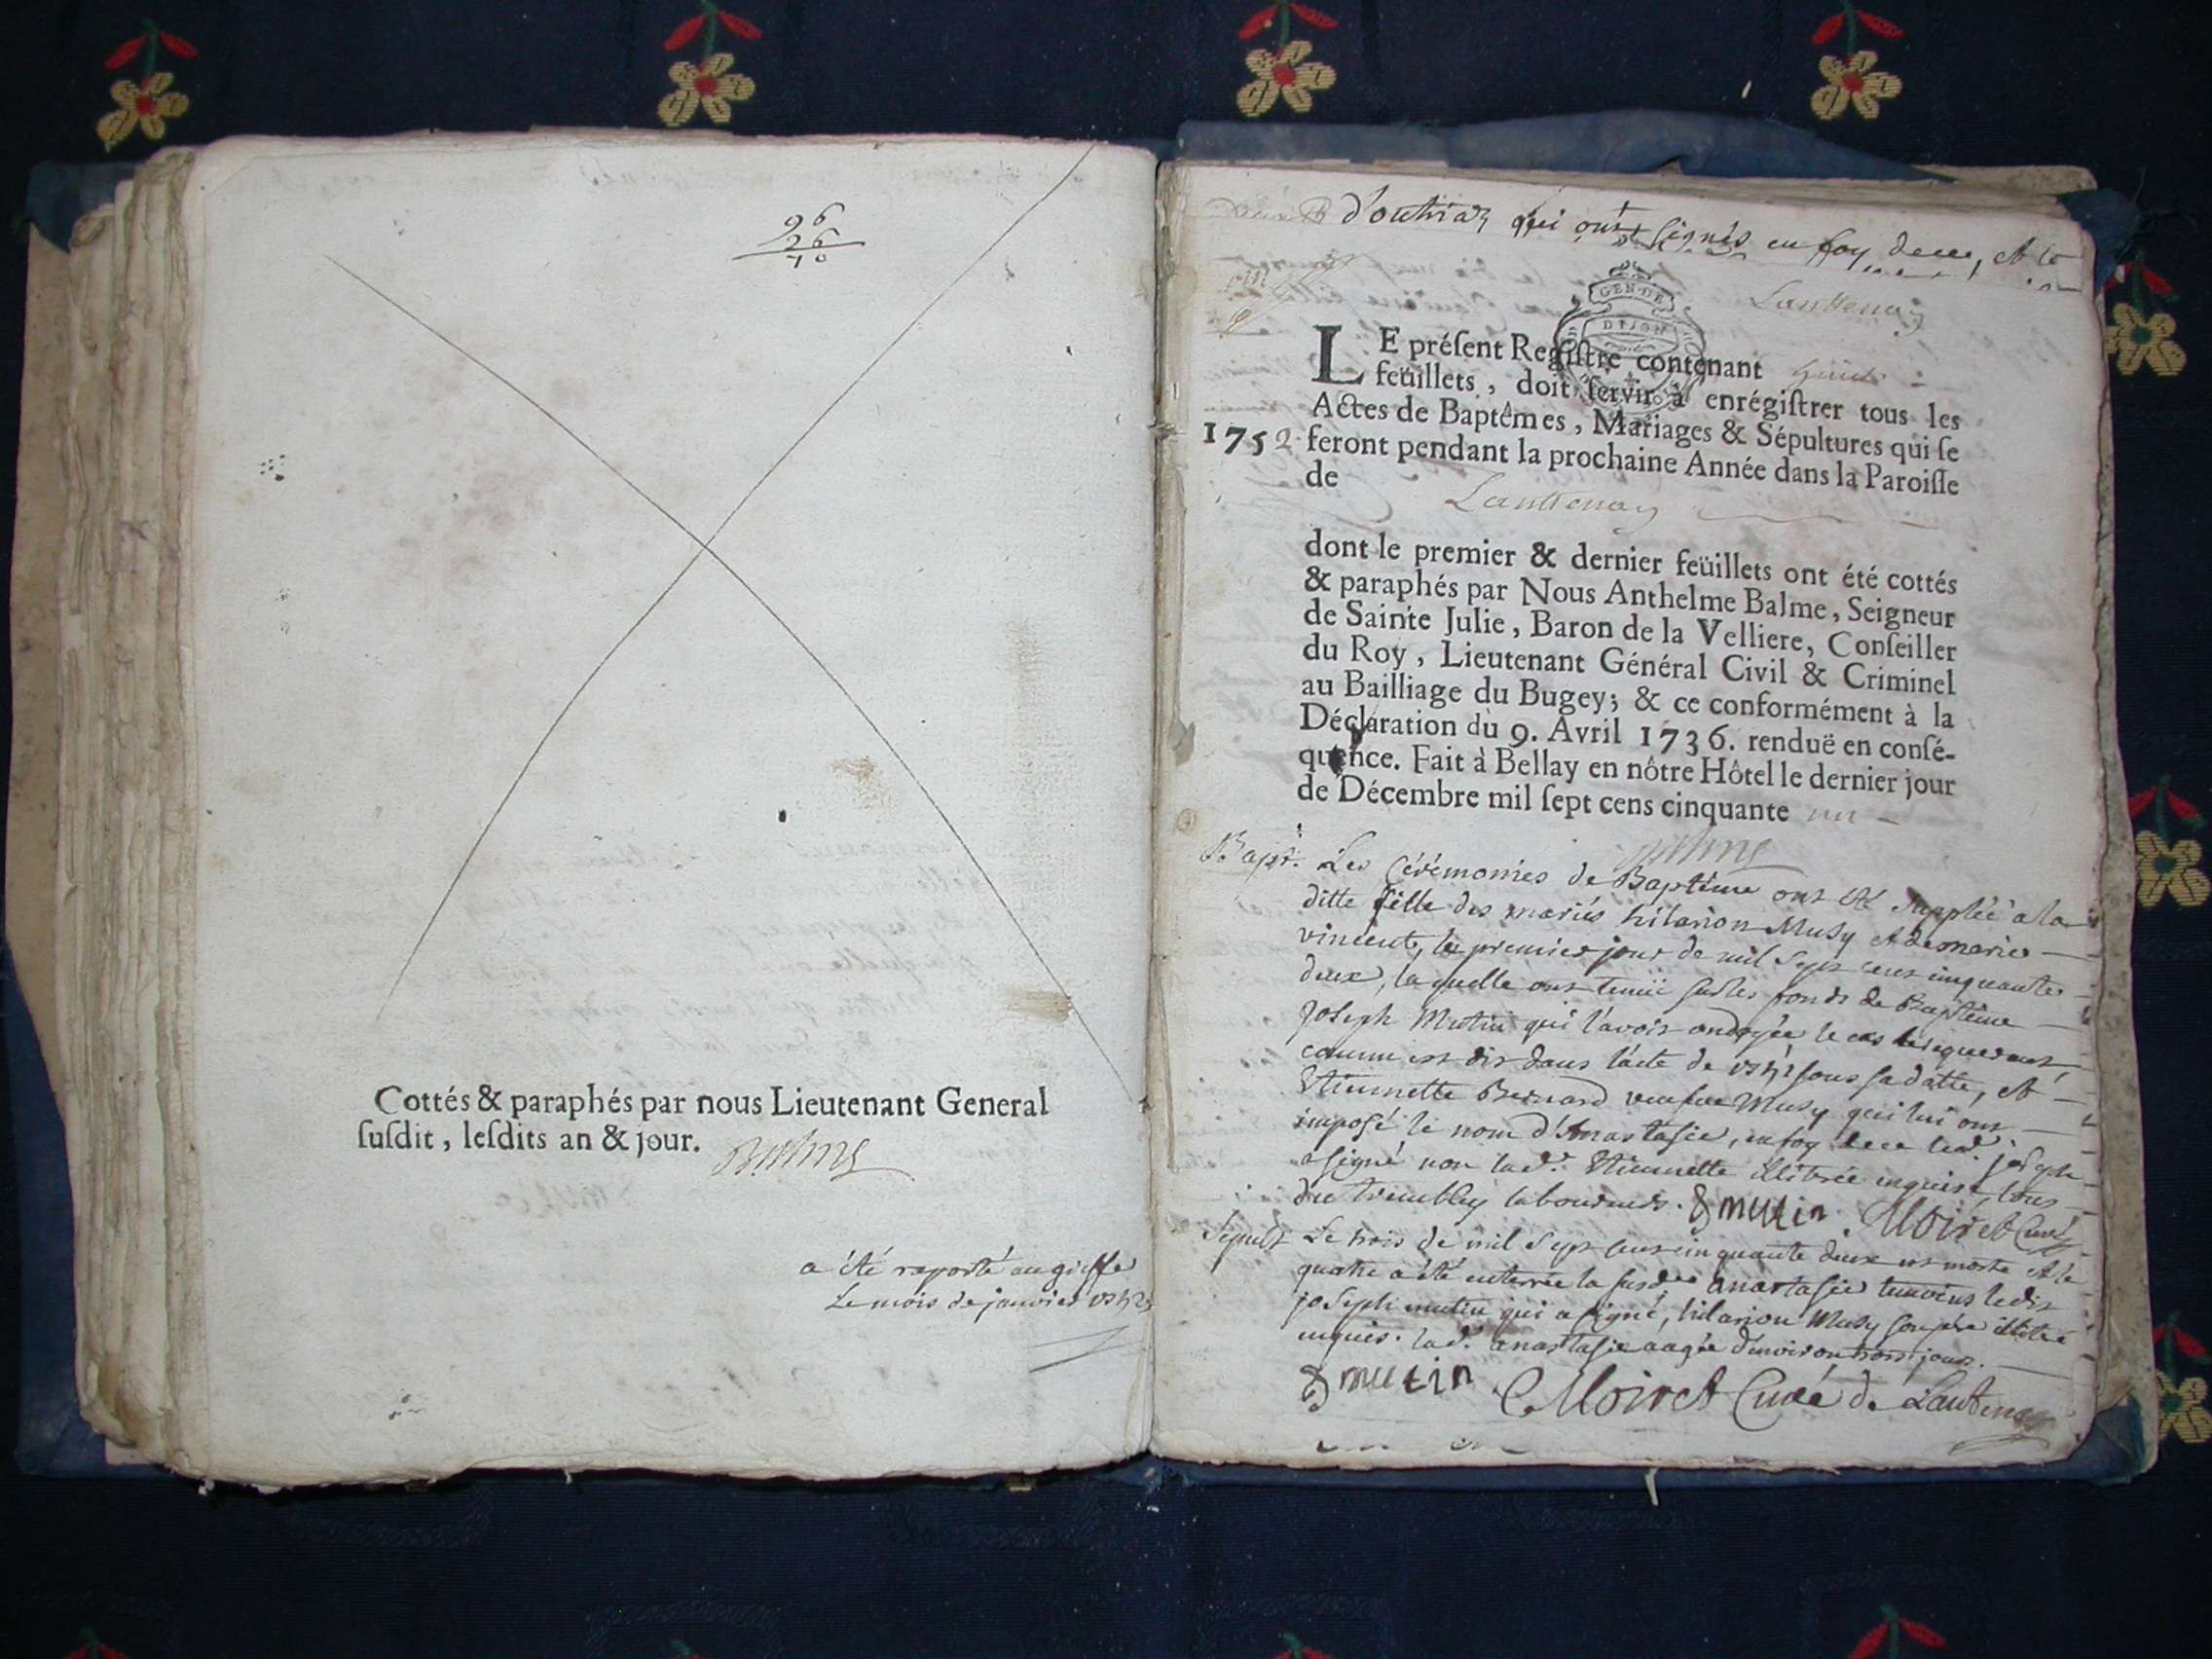 96
26
70
Cottés & paraphés par nous Lieutenant General
ſuſdit, leſdits an & jour.
Balme
a été raporté au greffe
Le mois de janvier 1752
d'outriaz qui ont signés en foy de ce, et le
Lanttenay
GEN·DE
DIJON
LE préſent Regiſtre contenant huit
feüillets, doit ſervir à enrégiſtrer tous les
Actes de Baptêmes, Mariages & Sépultures qui ſe
1752 feront pendant la prochaine Année dans la Paroiſſe
de
Lanttenay
dont le premier & dernier feüillets ont été cottés
& paraphés par Nous Anthelme Balme, Seigneur
de Sainte Julie, Baron de la Velliere, Conſeiller
du Roy, Lieutenant Général Civil & Criminel
au Bailliage du Bugey; & ce conformément à la
Déclaration du 9. Avril 1736. renduë en conſé-
quence. Fait à Bellay en nôtre Hôtel le dernier jour
de Décembre mil ſept cens cinquante un
Balme
Bapt. Les Cérémonies de Baptême ont été supplée à la
ditte fille des mariés hilarion Musy et de marie
vincent, le premier jour de mil sept cens cinquante
deux, laquelle ont tenüe sur les fonds de Baptême
Joseph Mutin qui l'avoit ondoyée le cas le requerant,
comme est dit dans l'acte de 1751 sous sa datte, et
Etiennette Bernard veufve Musy qui lui ont
imposé le nom d'Anastasie, en foy de ce led. joseph
a signé non lad. Etiennette illitrée enquise, tous
du trembley laboureurs. J mutin Moiret Curé
Sepult. Le trois de mil sept cens cinquante deux est morte et le
quatre a été enterrée la susd. anastasie temoins ledit
joseph mutin qui a signé, hilarion Musy son père illitré
enquis. lad. anastasie aagée d'environ trois jours.
J mutin Moiret Curé de Lantenay